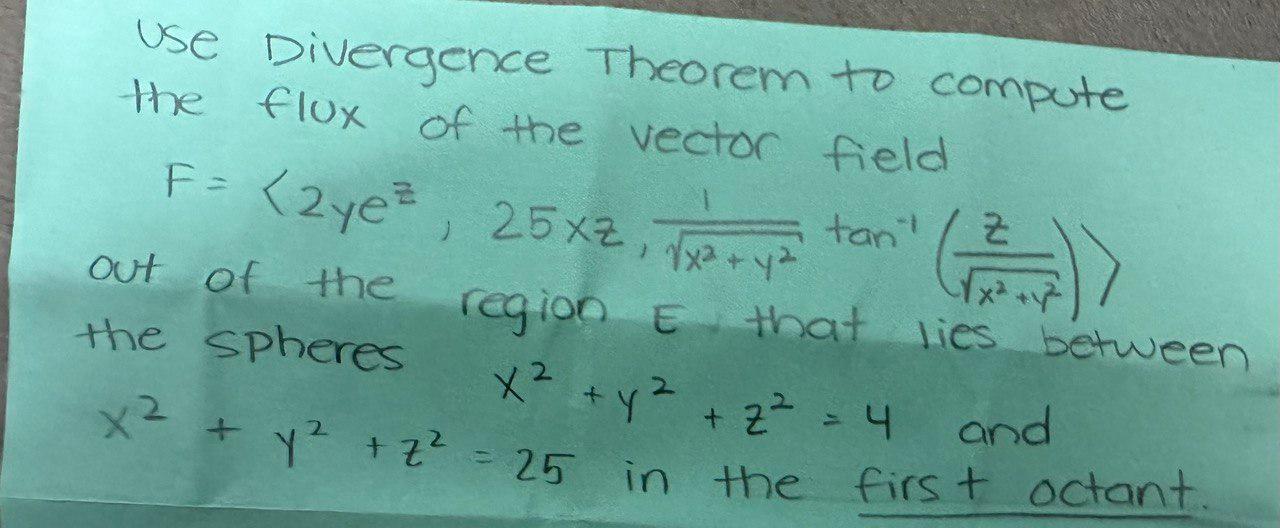 Use Divergence Theorem to compute
the flux of the vector field
F = ⟨2ye^z, 25xz, 1/√(x²+y²) tan⁻¹(z/√(x²+y²))⟩
out of the region E that lies between
the spheres x² + y² + z² = 4 and
x² + y² + z² = 25 in the first octant.